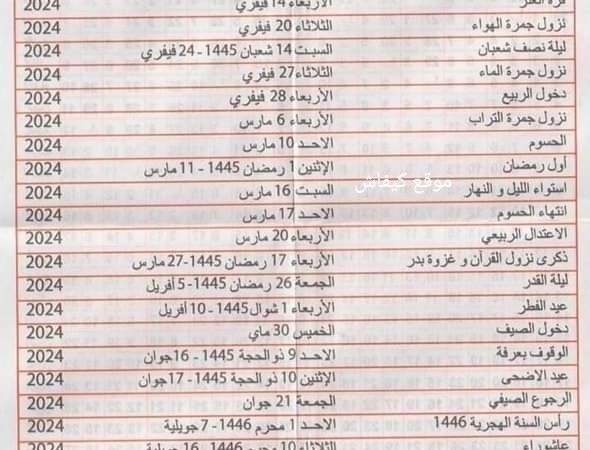 قرة العنز الأربعاء 14 فيفري 2024
نزول جمرة الهواء الثلاثاء 20 فيفري 2024
ليلة نصف شعبان السبت 14 شعبان 1445 - 24 فيفري 2024
نزول جمرة الماء الثلاثاء 27 فيفري 2024
دخول الربيع الأربعاء 28 فيفري 2024
نزول جمرة التراب الأربعاء 6 مارس 2024
الحسوم الاحد 10 مارس 2024
أول رمضان الإثنين 1 رمضان 1445 - 11 مارس 2024
موقع كيفاش
استواء الليل و النهار السبت 16 مارس 2024
انتهاء الحسوم الاحد 17 مارس 2024
الاعتدال الربيعي الأربعاء 20 مارس 2024
ذكرى نزول القرآن و غزوة بدر الأربعاء 17 رمضان 1445 - 27 مارس 2024
ليلة القدر الجمعة 26 رمضان 1445 - 5 أفريل 2024
عيد الفطر الأربعاء 1 شوال 1445 - 10 أفريل 2024
دخول الصيف الخميس 30 ماي 2024
الوقوف بعرفة الاحد 9 ذو الحجة 1445 - 16 جوان 2024
عيد الاضحى الإثنين 10 ذو الحجة 1445 - 17 جوان 2024
الرجوع الصيفي الجمعة 21 جوان 2024
رأس السنة الهجرية 1446 الاحد 1 محرم 1446 - 7 جويلية 2024
عاشوراء الثلاثاء 10 محرم 1446 - 16 جويلية 2024